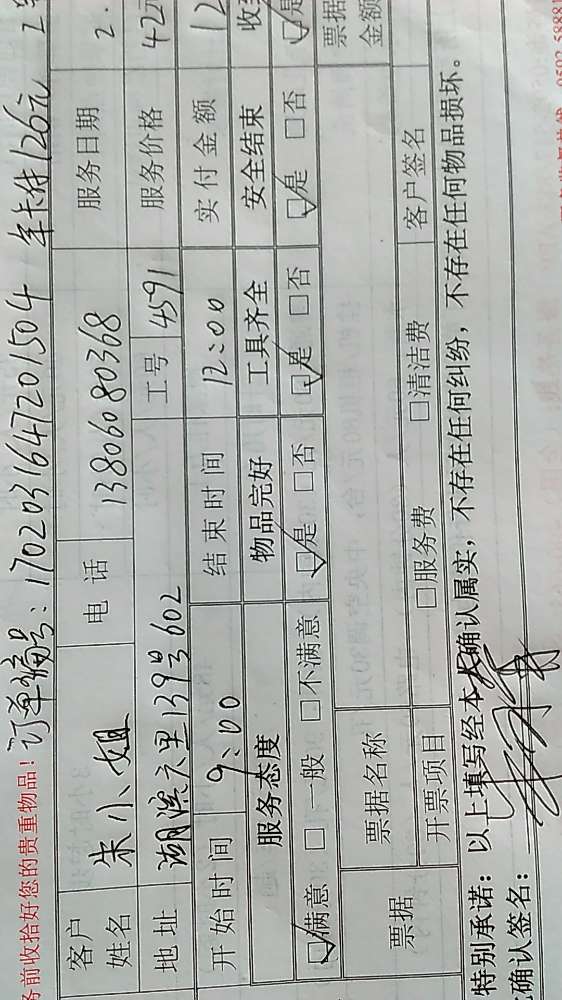 务前收拾好您的贵重物品！ 订单编号：1702031647201504 年卡待126元
客户姓名 朱小姐 电话 13806080368 服务日期 2.
地址 湖滨六里139号602 工号 4591 服务价格 42元
开始时间 9:00 结束时间 12:00 实付金额 12
服务态度 物品完好 工具齐全 安全结束 收
☑满意 □一般 □不满意 ☑是 □否 ☑是 □否 ☑是 □否 ☑是
票据 票据名称 票据金额
开票项目 □服务费 □清洁费 客户签名
特别承诺：以上填写经本人确认属实，不存在任何纠纷，不存在任何物品损坏。
确认签名：